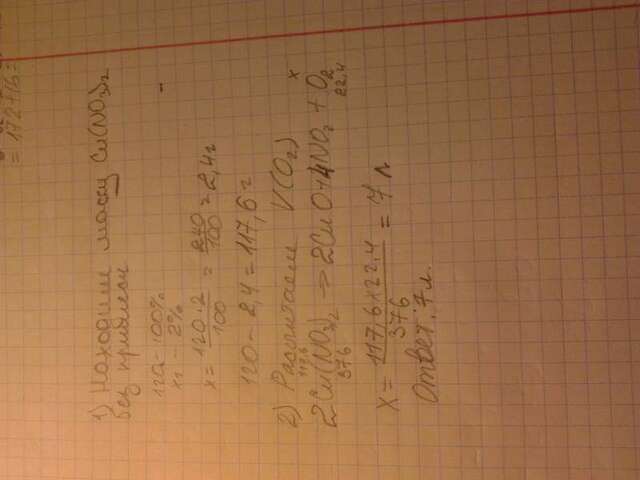 = 172+16=
1) Находим массу Cu(NO3)2
без примеси
120 - 100%
xг - 2%
x = 120·2/100 = 240/100 = 2,4г
120 - 2,4 = 117,6 г
2) Рассчитаем V(O2)
117,6 x
2Cu(NO3)2 → 2CuO+4NO2 + O2
376 22,4
X = 117,6x22,4/376 = 7 л
Ответ: 7л.